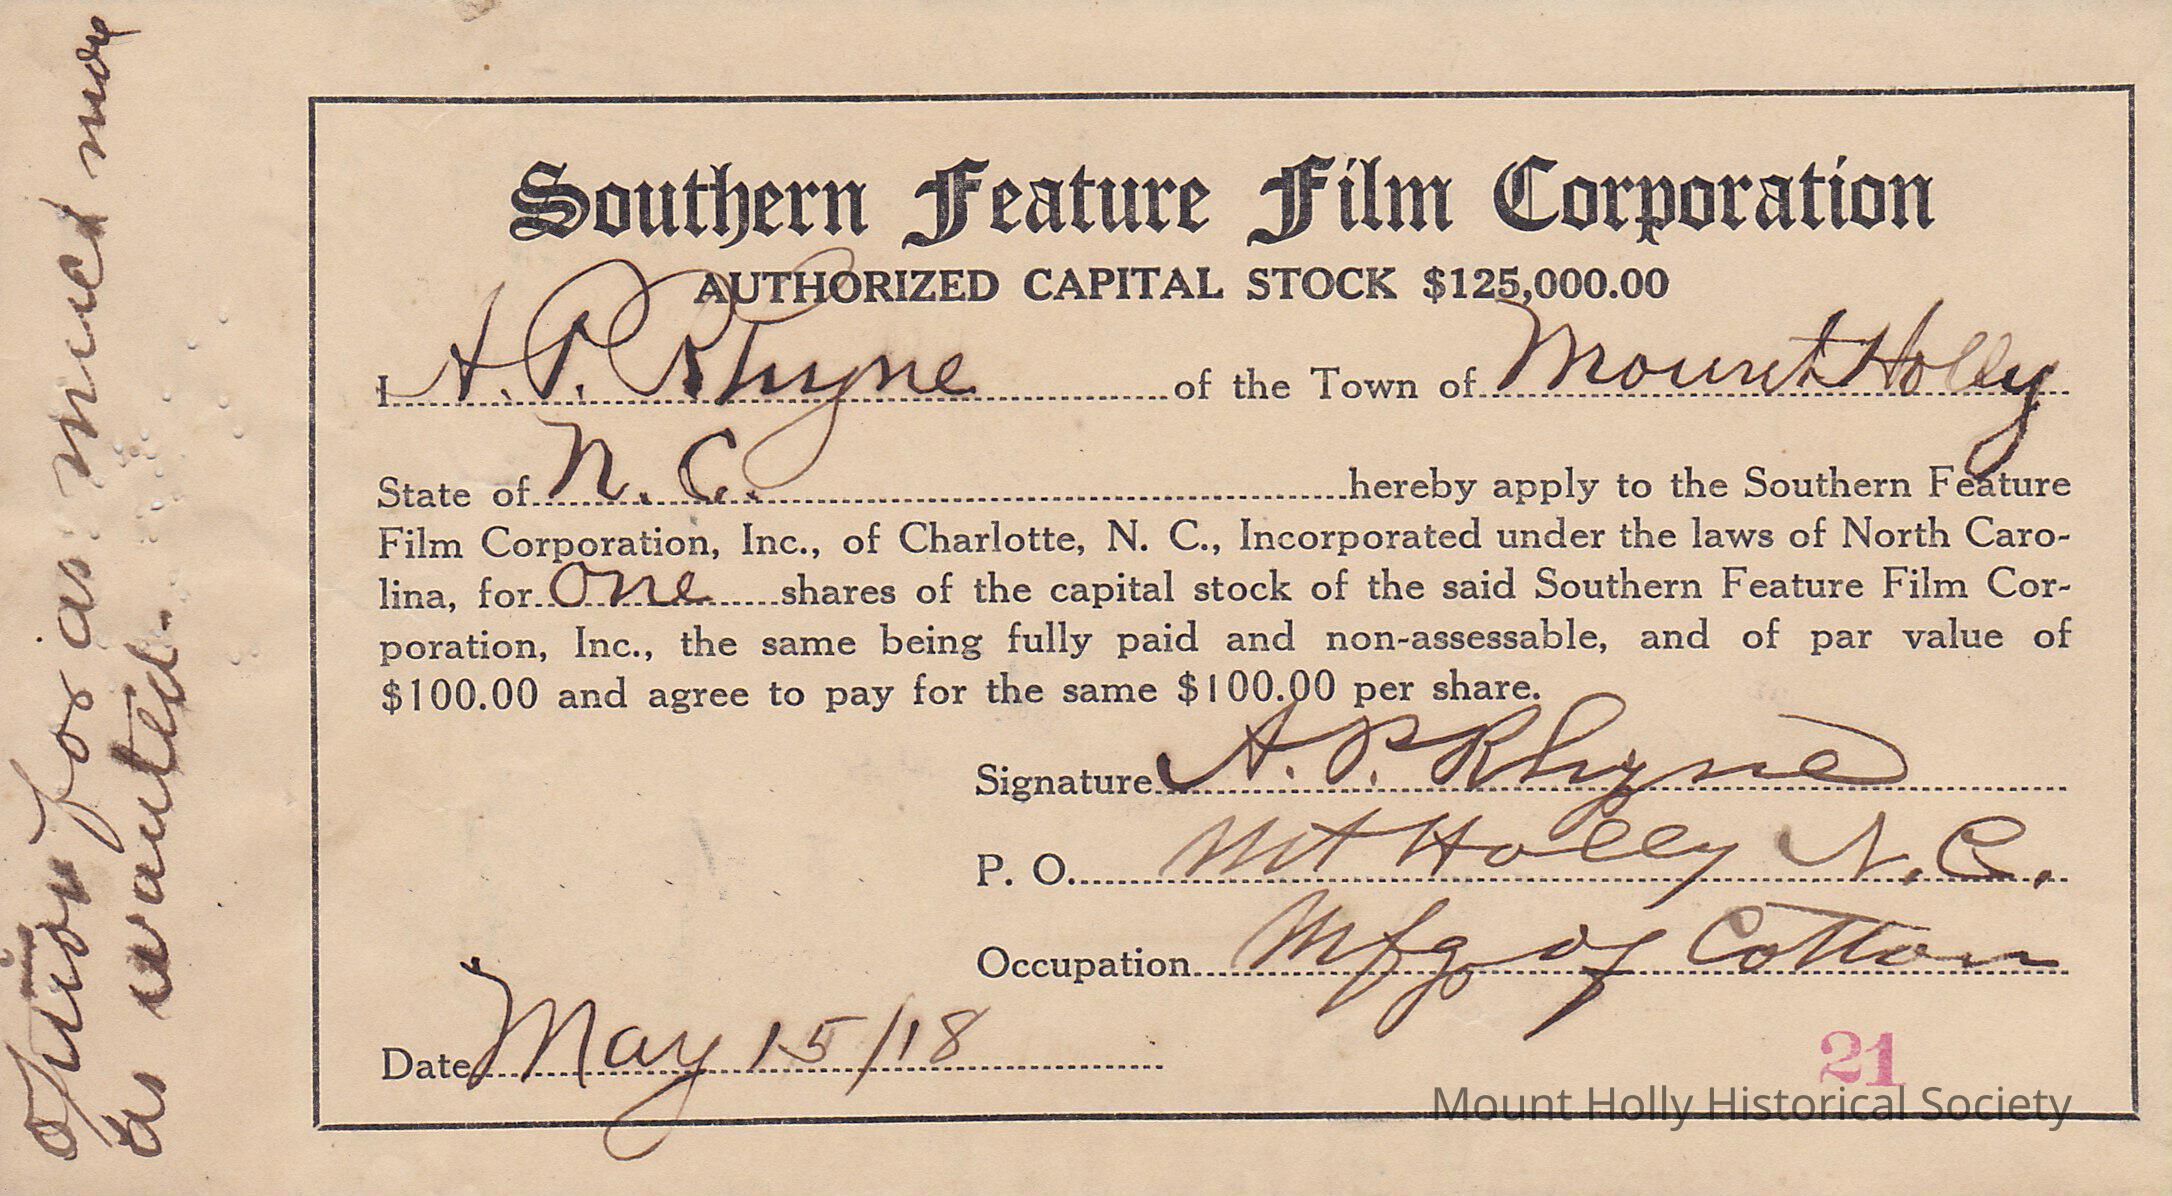 Southern Feature Film Corporation
AUTHORIZED CAPITAL STOCK $125,000.00
I A. P. Rhyne of the Town of Mount Holly
State of N. C. hereby apply to the Southern Feature
Film Corporation, Inc., of Charlotte, N. C., Incorporated under the laws of North Caro-
lina, for one shares of the capital stock of the said Southern Feature Film Cor-
poration, Inc., the same being fully paid and non-assessable, and of par value of
$100.00 and agree to pay for the same $100.00 per share.
Signature A. P. Rhyne
P. O. Mt Holly N. C.
Occupation Mfg of Cotton
Date May 15/18
21
Mount Holly Historical Society
option for as much more
as wanted.